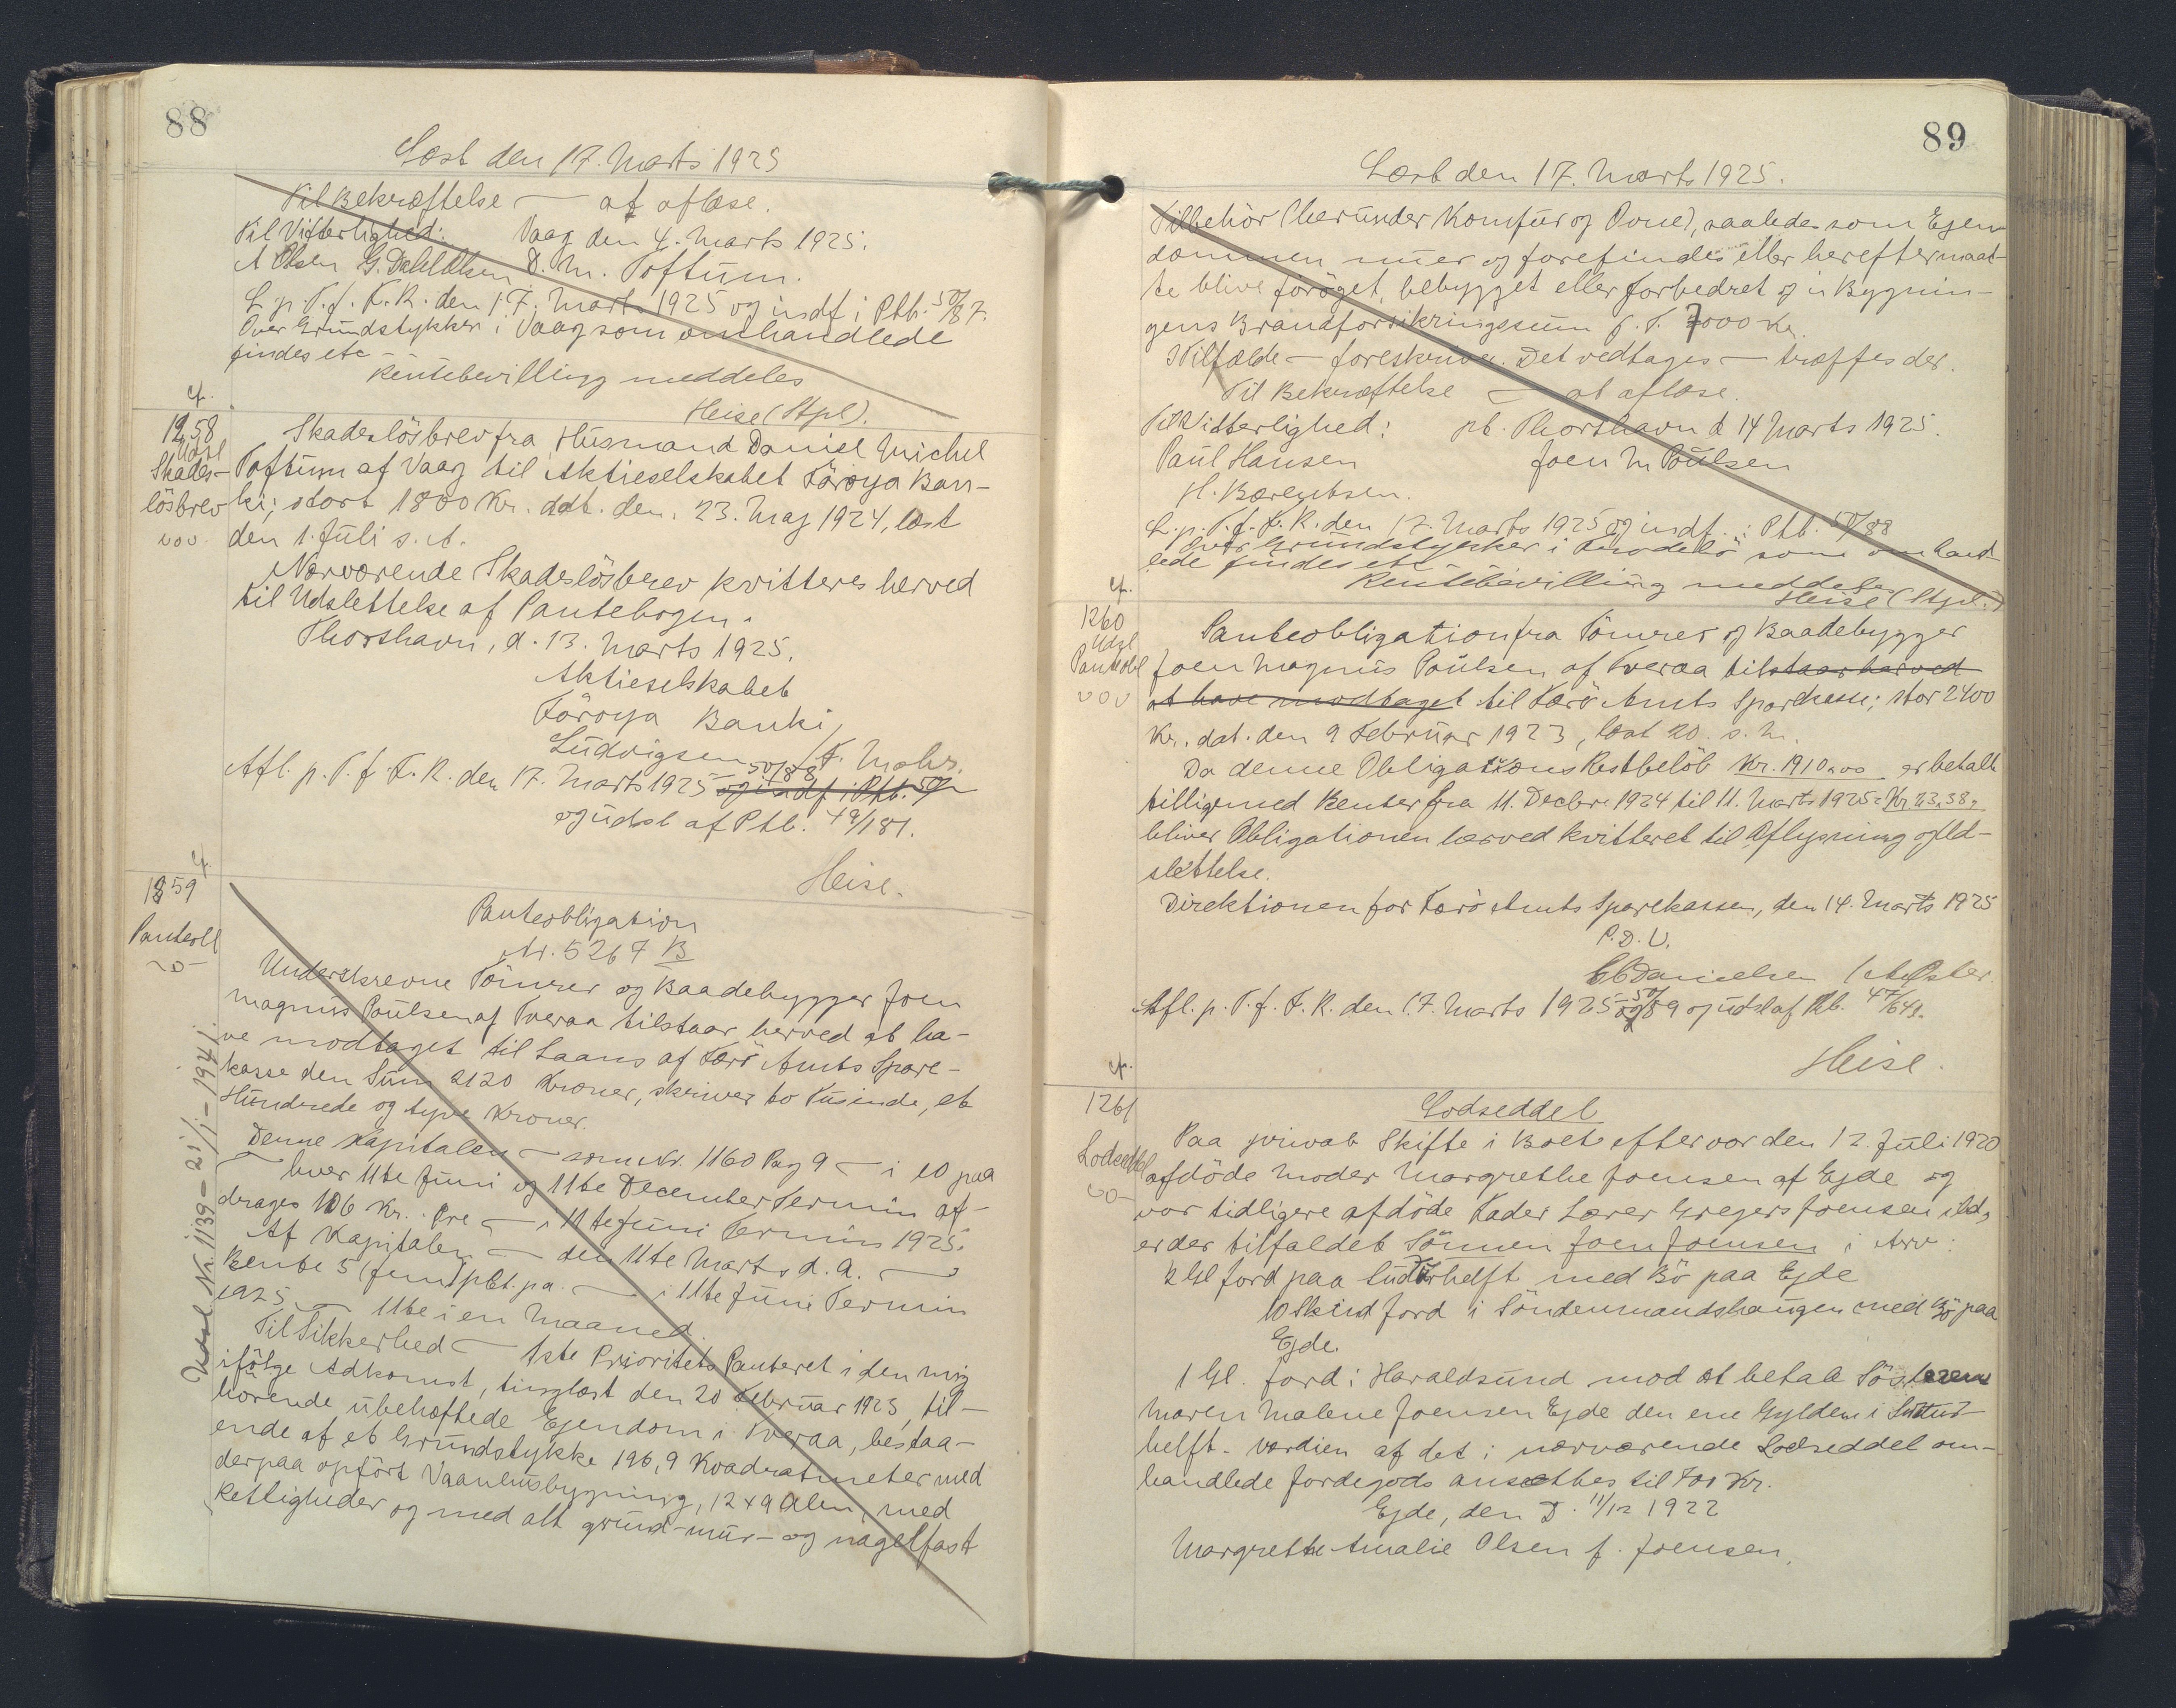 88
Læst den 17. Marts 1925
Til Bekræftelse — at aflæse.
Til Vitterlighed: Vaag den 4. Marts 1925.
A Olsen G. Dahl Olsen D. M. Toftum.
L. p. T. f. F. R. den 17. Marts 1925 og indf i Ptb. 50/87.
Over Grundstykker i Vaag som omhandlede
findes etc —
Rentebevilling meddeles
Heise (Stpl).
cf.
1258
Udsl
Skades-
løsbrev
Skadesløsbrev fra Husmand Daniel Michel
Toftum af Vaag til Aktieselskabet Föroya Ban-
ki; stort 1800 Kr. dat. den. 23. Maj 1924, læst
den 1. Juli s. A.
Nærværende Skadesløsbrev kvitteres herved
til Udslettelse af Pantebogen.
Thorshavn, d. 13. Marts 1925.
Aktieselskabet
Föroya Banki
Ludvigsen / F. Mohr.
Afl. p. T. f. F. R. den 17. Marts 1925 50/88 og indf i Ptb. 50/
og udsl af Ptb. 49/181.
Heise.
cf.
1259
Panteobl
Panteobligation
Nr. 5267 B
Underskrevne Tömrer og Baadebygger Joen
Magnus Poulsen af Tveraa tilstaar herved at ha-
ve modtaget til Laans af Færö Amts Spare-
kasse den Sum 2120 Kroner, skriver to Tusinde, et
Hundrede og tyve Kroner.
Denne Kapitalen — som Nr. 1160 Pag 9 — i 10 paa
— hver 11te Juni og 11te December Termin af-
drages 106 Kr. Øre — i 11te Juni Termin 1925.
Af Kapitalen — den 11te Marts d. A. —
Rente 5 (fem) pCt. pa. — i 11te Juni Termin
1925 — 11te i en Maaned.
Til Sikkerhed — 1ste Prioritets Panteret i den mig
ifölge Adkomst, tinglæst den 20 Februar 1923, til-
hörende ubehæftede Ejendom i Tveraa, bestaa-
ende af et Grundstykke 196,9 Kvadratmeter med
derpaa opfört Vaanhusbygning, 12 x 9 Alen, med
Rettigheder og med alt grund- mur- og nagelfast
Udsl Nr. 1139 - 21/1 - 1941
89
Læst den 17. Marts 1925.
Tilbehör (herunder Komfur og Ovne), saaledes som Ejen-
dommen nu er og forefindes eller herefter maat-
te blive foröget, bebygget eller forbedret og is Bygnin-
gens Brandforsikringssum p. T. 7000 Kr.
I Tilfælde — foreskriver. Det vedtages — træffes der.
Til Bekræftelse — at aflæse.
Til Vitterlighed: pt. Thorshavn d 14 Marts 1925.
Paul Hansen Joen M Poulsen
H. Bærentsen.
L. p. T. f. F. R. den 17. Marts 1925 og indf. i Ptb. 50/88
Over Grundstykker i som omhand-
lede findes etc —
Rentebevilling meddeles
Heise (Stpl.)
cf.
1260
Udsl
Panteobl
Panteobligation fra Tömrer og Baadebygger
Joen Magnus Poulsen af Tveraa tilstaar herved
at have modtaget til Færö Amts Sparekasse; stor 2400
Kr. dat. den 9 Februar 1923, læst 20. s. M.
Da denne Obligations Restbelöb Kr. 1910,00 er betalt
tilligemed Renter fra 11. Decbr. 1924 til 11. Marts 1925 = Kr 23,38,
bliver Obligationen herved kvitteret til Aflysning og Ud-
slettelse.
Direktionen for Færö Amts Sparekasse, den 14. Marts 1925
P. D. V.
Danielsen /
Afl. p. T. f. F. R. den 17. Marts 1925 50/89 og udsl af Ptb. 47/649.
Heise.
cf.
1261
Lodseddel
Lodseddel
Paa privat Skifte i Boet efter vor den 12. Juli 1920
afdöde Moder Margrethe Joensen af Ejde og
vor tidligere afdöde Fader Lærer Gregers Joensen ibd,
er der tilfaldet Sönnen Joen Joensen i Arv:
2 Gl Jord paa med Bö paa Ejde
10 Skind Jord i Söndenmandshaugen med Bö paa
Ejde.
1 Gl. Jord i Haraldsund mod at betale Sösteren
Maren Malene Joensen Ejde den ene Gylden i
helft. Værdien af det i nærværende Lodseddel om-
handlede Jordegods ansættes til 700 Kr.
Ejde, den D. 11/12 1922
Margrethe Amalie Olsen f. Joensen.